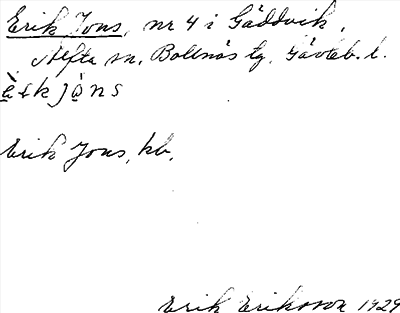 Erik Jons, nr 4 i Gäddvik,
Alfta sn, Bollnäs tg, Gävleb. l.
Erik Jons, kb.
Erik Eriksson 1929